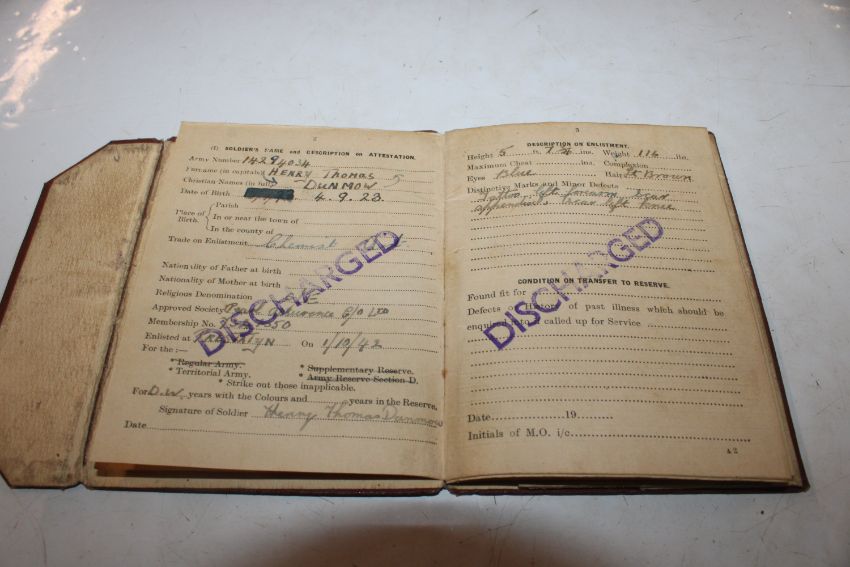 2
(I) SOLDIER'S NAME and DESCRIPTION on ATTESTATION.
Army Number 14294034
Surname (in capitals) HENRY Thomas
Christian Names (in full) DUNMOW
Date of Birth 4.9.23.
Place of Birth.
Parish
In or near the town of
In the county of
Trade on Enlistment Chemist
Nationality of Father at birth
Nationality of Mother at birth
Religious Denomination E
Approved Society Pearl Assurance C/O LTD
Membership No.
Enlisted at On 1/10/42
For the :—
* Regular Army.
* Supplementary Reserve.
* Territorial Army.
* Army Reserve Section D.
* Strike out those inapplicable.
For D.W. years with the Colours and years in the Reserve.
Signature of Soldier Henry Thomas Dunmow
Date
DISCHARGED
3
DESCRIPTION ON ENLISTMENT.
Height 5 ft. ins. Weight 116 lbs.
Maximum Chest ins. Complexion
Eyes Blue Hair Lt Brown
Distinctive Marks and Minor Defects
Tattoo left forearm scar
appendix scar left knee
CONDITION ON TRANSFER TO RESERVE.
Found fit for
Defects or History of past illness which should be
enquired into if called up for Service
Date 19
Initials of M.O. i/c
42
DISCHARGED